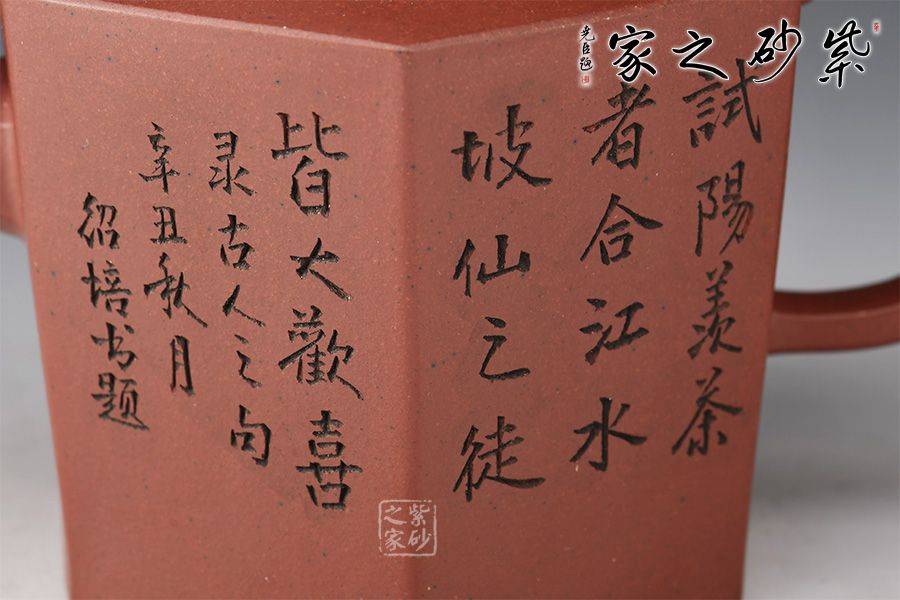 紫砂之家
尧臣题
試陽羨茶
者合江水
坡仙之徒
皆大歡喜
录古人之句
辛丑秋月
紹培书题
紫砂之家